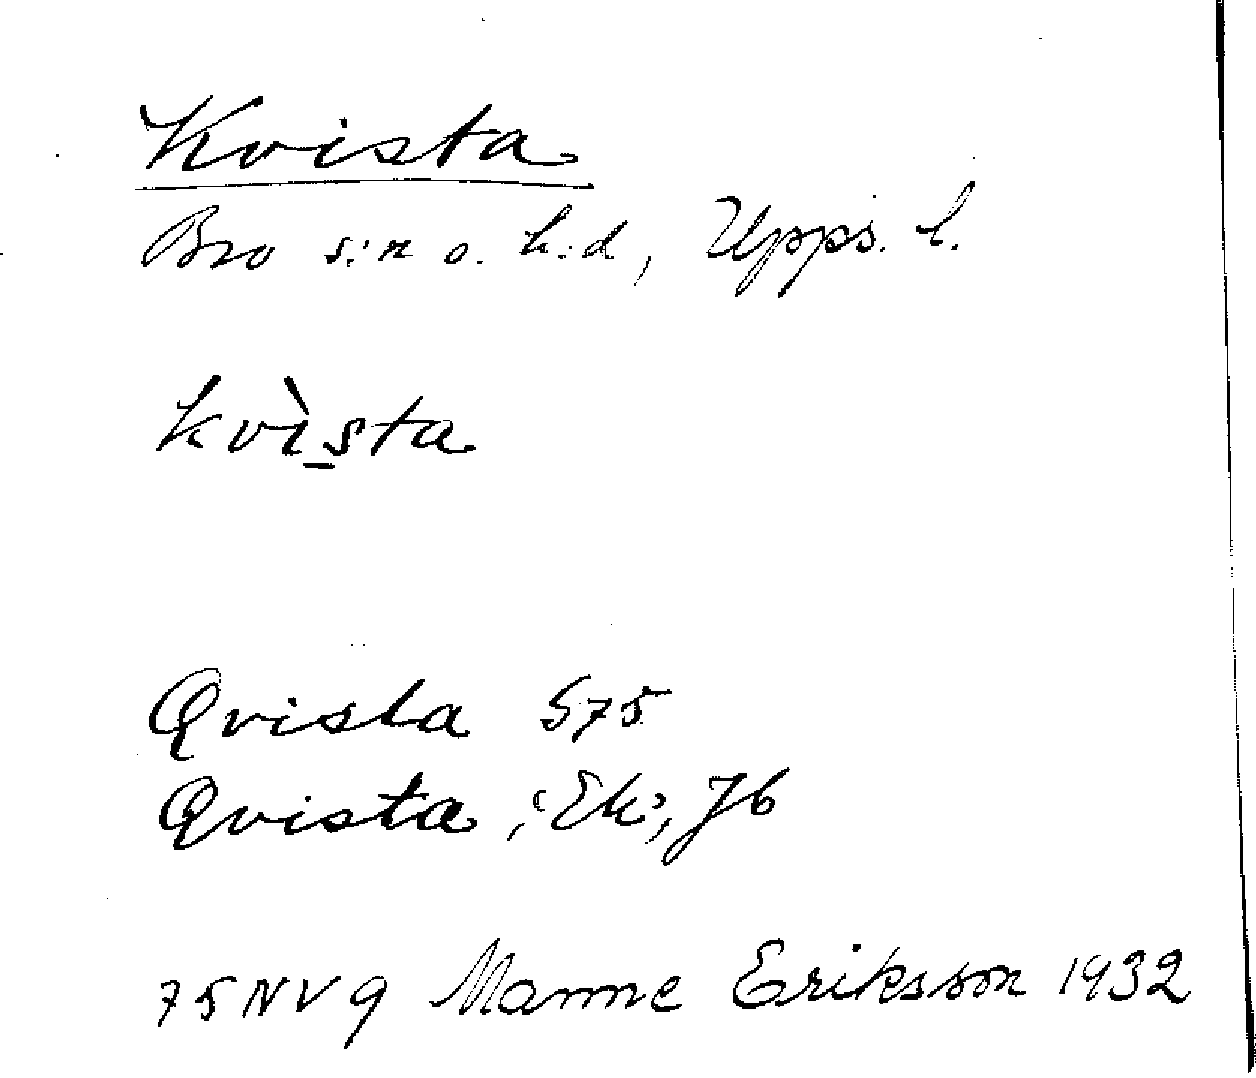 Kvista
Bro s:n o. h:d, Upps. l.
kvìs̲ta
Qvista S75
Qvista, 'Ek', Jb
75NV9 Manne Eriksson 1932